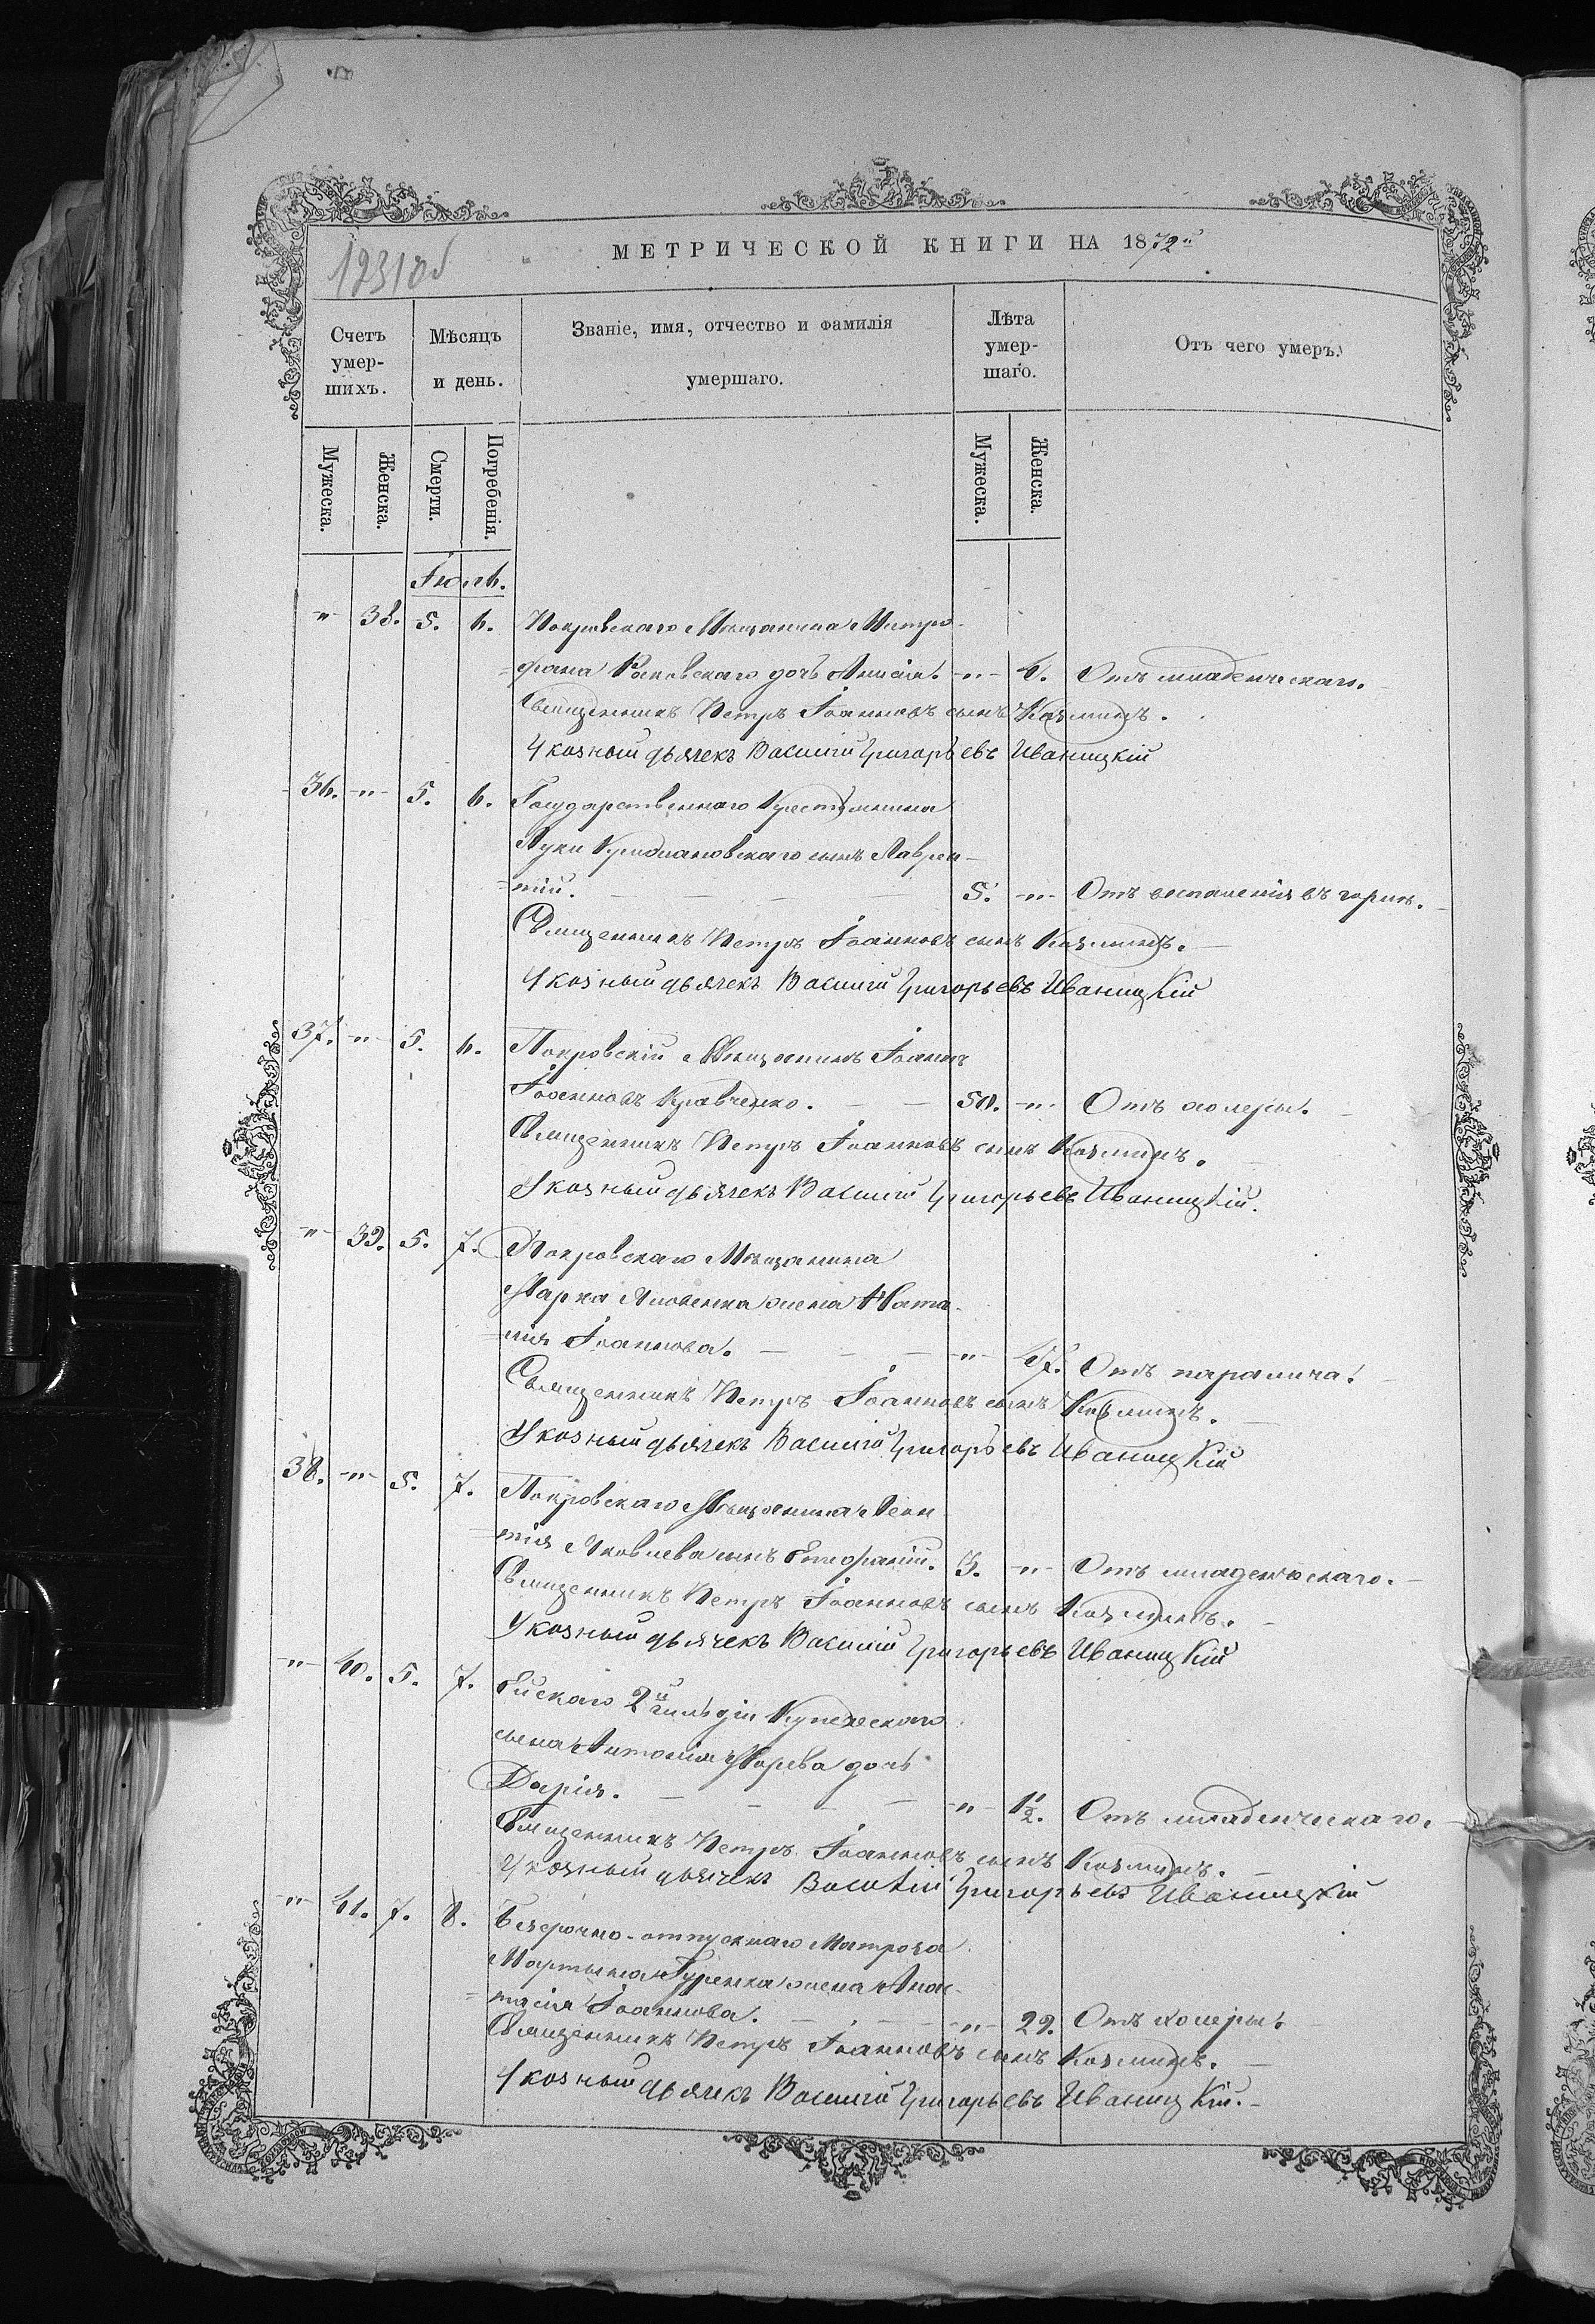 1231об
МЕТРИЧЕСКОЙ КНИГИ НА 1872й
Счетъ умер-шихъ.
Мѣсяцъ и день.
Званіе, имя, отчество и фамилія умершаго.
Лѣта умер-шаго.
Отъ чего умеръ.
Мужеска. Женска. Смерти. Погребенія. Мужеска. Женска.
Іюль.
-"- 38. 5. 6. Покровскаго Мѣщанина Митро-
=фана дочь Анисія. -"- Отъ младенческаго.
Священникъ Петръ Іоанновъ сынъ Козминъ.
Указный дьячекъ Василій Григорьевъ Иваницкій
36. -"- 5. 6. Государственнаго Крестьянина
Луки сынъ Лаврен-
=тій. 5. -"- Отъ воспаленія въ горлѣ.
Священникъ Петръ Іоанновъ сынъ Козминъ.
Указный дьячекъ Василій Григорьевъ Иваницкій
37. -"- 5. 6. Покровскій Мѣщанинъ Іоаннъ
Іоанновъ Кравченко. 50. -"- Отъ холеры.
Священникъ Петръ Іоанновъ сынъ Козминъ.
Указный дьячекъ Василій Григорьевъ Иваницкій.
-"- 39. 5. 7. Покровскаго Мѣщанина
Марка Яковенка жена Ната-
=лія Іоаннова. -"- 47. Отъ паралича.
Священникъ Петръ Іоанновъ сынъ Козминъ.
Указный дьячекъ Василій Григорьевъ Иваницкій
38. -"- 5. 7. Покровскаго Мѣщанина Леон
=тія Яковлева сынъ Епифаній. 3. -"- Отъ младенческаго.
Священникъ Петръ Іоанновъ сынъ Козминъ.
Указный дьячекъ Василій Григорьевъ Иваницкій
-"- 40. 5. 7. Ейскаго 2й гильдіи Купеческаго
сына Антонія дочь
Дарія. -"- 1/2. Отъ младенческаго.
Священникъ Петръ Іоанновъ сынъ Козминъ.
Указный дьячекъ Василій Григорьевъ Иваницкій
-"- 41. 7. 8. Безсрочно-отпускнаго Матроза
Мартына Гуренка жена Анас-
=тасія Іоаннова. -"- 29. Отъ холеры.
Священникъ Петръ Іоанновъ сынъ Козминъ.
Указный дьячекъ Василій Григорьевъ Иваницкій.